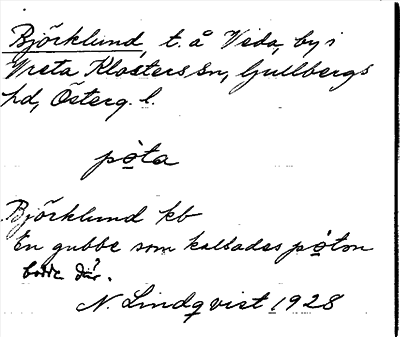 Björklund, t. å Veda, by i
Vreta Klosters sn, Gullbergs
hd, Österg. l.
pò̲ta
Björklund kb
En gubbe som kallades pò̲ton
bodde där.
N. Lindqvist 1928